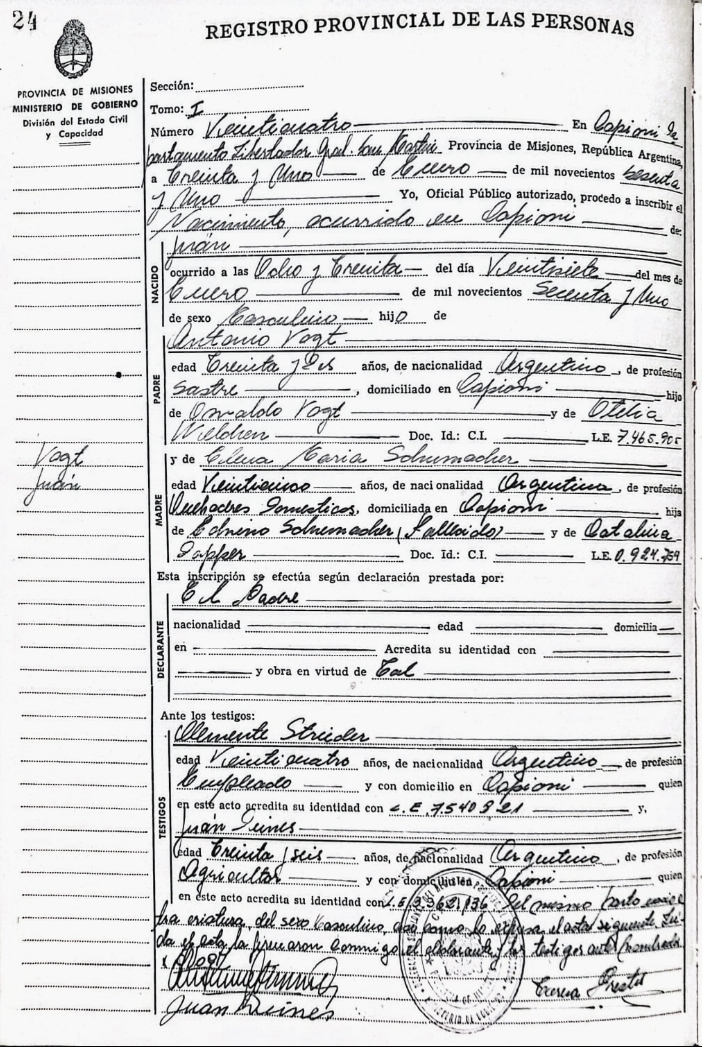 24
REGISTRO PROVINCIAL DE LAS PERSONAS
PROVINCIA DE MISIONES
MINISTERIO DE GOBIERNO
División del Estado Civil
y Capacidad
Vogt
Juán
Sección:
Tomo: I
Número Veinticuatro En Capioni De
partamento Libertador Gral. San Martin Provincia de Misiones, República Argentina,
a Treinta y Uno de Enero de mil novecientos Sesenta
y Uno Yo, Oficial Público autorizado, procedo a inscribir el
Nacimiento, ocurrido en Capioni de:
Juán
NACIDO
ocurrido a las Ocho y Treinta del día Veintisiete del mes de
Enero de mil novecientos Sesenta y Uno
de sexo Masculino hijo de
Antonio Vogt
PADRE
edad Treinta y años, de nacionalidad Argentino, de profesión
Sastre, domiciliado en Capioni hijo
de Osvaldo Vogt y de Otilia
Doc. Id.: C.I. L.E. 7.465.905
y de Elena Maria Schumacher
MADRE
edad Veinticinco años, de nacionalidad Argentina, de profesión
Quehaceres Domesticos, domiciliada en Capioni hija
de Schumacher (Fallecido) y de Catalina
Doc. Id.: C.I. L.E. 0.924.759
Esta inscripción se efectúa según declaración prestada por:
El Padre
DECLARANTE
nacionalidad edad domicilia
en Acredita su identidad con
y obra en virtud de Tal
Ante los testigos:
Clemente Streider
TESTIGOS
edad Veinticuatro años, de nacionalidad Argentino, de profesión
Empleado y con domicilio en Capioni quien
en este acto acredita su identidad con L.E. 7.540.821 y,
Juán Deines
edad Treinta y seis años, de nacionalidad Argentino, de profesión
Agricultor y con domicilio en Capioni quien
en este acto acredita su identidad con L.E. 3.562.136 Del mismo parto nació
otra criatura, del sexo Masculino, así como lo expresa el acta siguiente. Leí
da el acta la firmaron conmigo el declarante y los testigos antes nombrados
Juan Deines